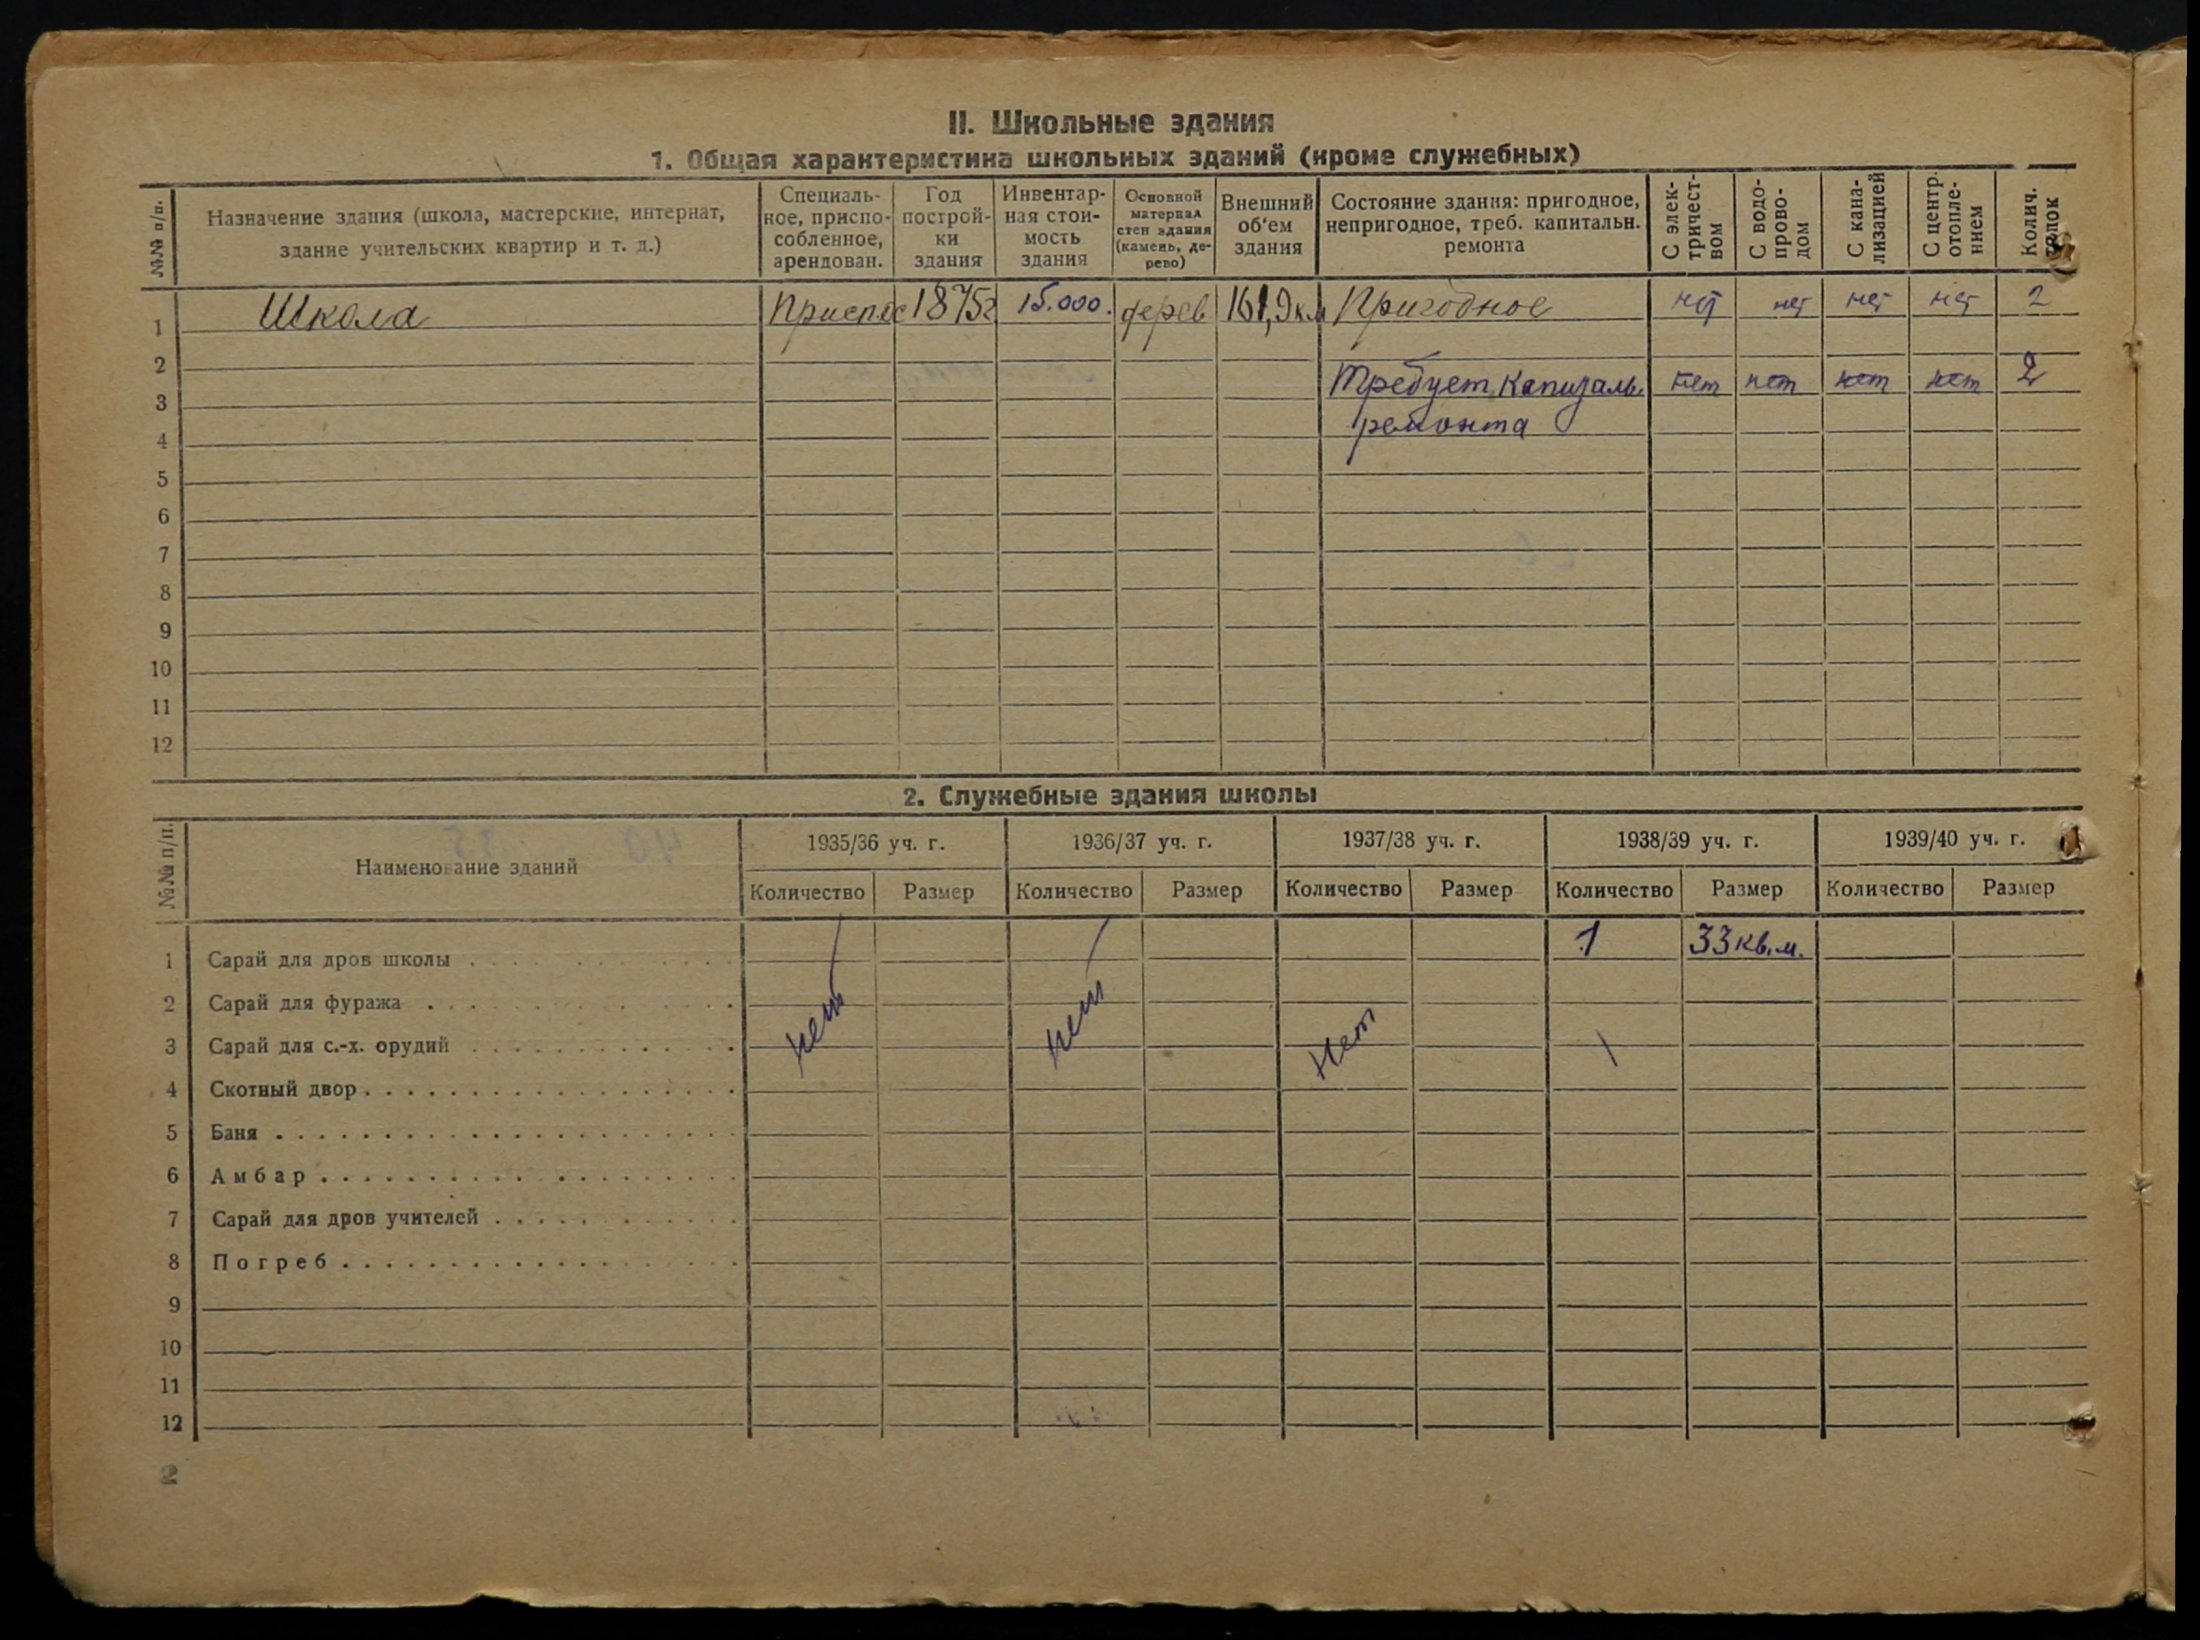 II. Школьные здания
1. Общая характеристика школьных зданий (кроме служебных)
№№ п/п.
Назначение здания (школа, мастерские, интернат,
здание учительских квартир и т. д.)
Специаль-
ное, приспо-
собленное,
арендован.
Год
построй-
ки
здания
Инвентар-
ная стои-
мость
здания
Основной
материал
стен здания
(камень, де-
рево)
Внешний
об'ем
здания
Состояние здания: пригодное,
непригодное, треб. капитальн.
ремонта
С элек-
тричест-
вом
С водо-
прово-
дом
С кана-
лизацией
С центр.
отопле-
нием
Колич.
1 Школа Приспос 1875г 15.000. дерев 161,9 км Пригодное нет нет нет нет 2
2
3 Требует капиталь. нет нет нет нет 2
4 ремонта
5
6
7
8
9
10
11
12
2. Служебные здания школы
№№ п/п.
Наименование зданий
1935/36 уч. г. 1936/37 уч. г. 1937/38 уч. г. 1938/39 уч. г. 1939/40 уч. г.
Количество Размер Количество Размер Количество Размер Количество Размер Количество Размер
1 Сарай для дров школы 1 33 кв.м.
2 Сарай для фуража
3 Сарай для с.-х. орудий нет нет нет
4 Скотный двор
5 Баня
6 Амбар
7 Сарай для дров учителей
8 Погреб
9
10
11
12
2